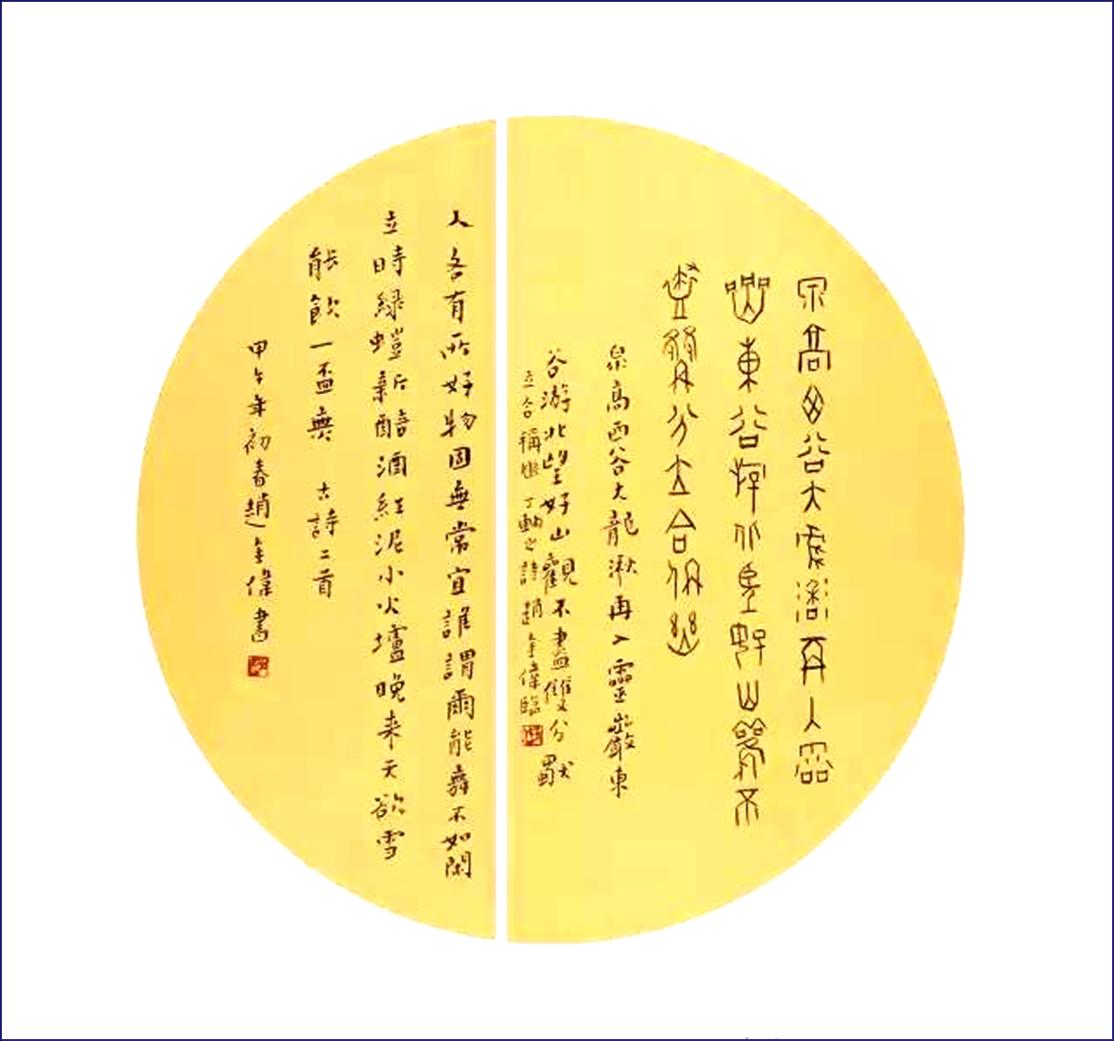 泉高西谷大龍湫再入靈
巖東谷游北望好山觀不
盡雙分立合稱幽
泉高西谷大龍湫再入靈巖東
谷游北望好山觀不盡雙分獨
立合稱幽丁輔之詩趙金偉臨
人各有所好物固無常宜誰謂爾能舞不如閑
立時緑螘新醅酒紅泥小火壚晚来天欲雪
能飲一盃無 古詩二首
甲午年初春趙金偉書